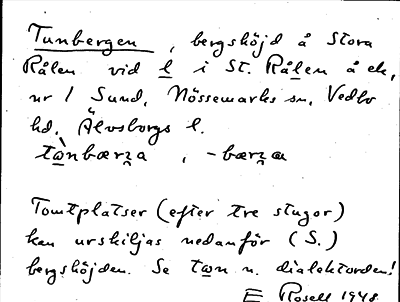 Tunbergen, bergshöjd å Stora
Rålen vid l i St. Rålen å ek.
nr 1 Sund, Nössemarks sn, Vedbo
hd. Älvsborgs l.
, -bærʒæ
Tomtplatser (efter tre stugor)
kan urskiljas nedanför (S.)
bergshöjden. Se n. dialektorden!
E Rosell 1948